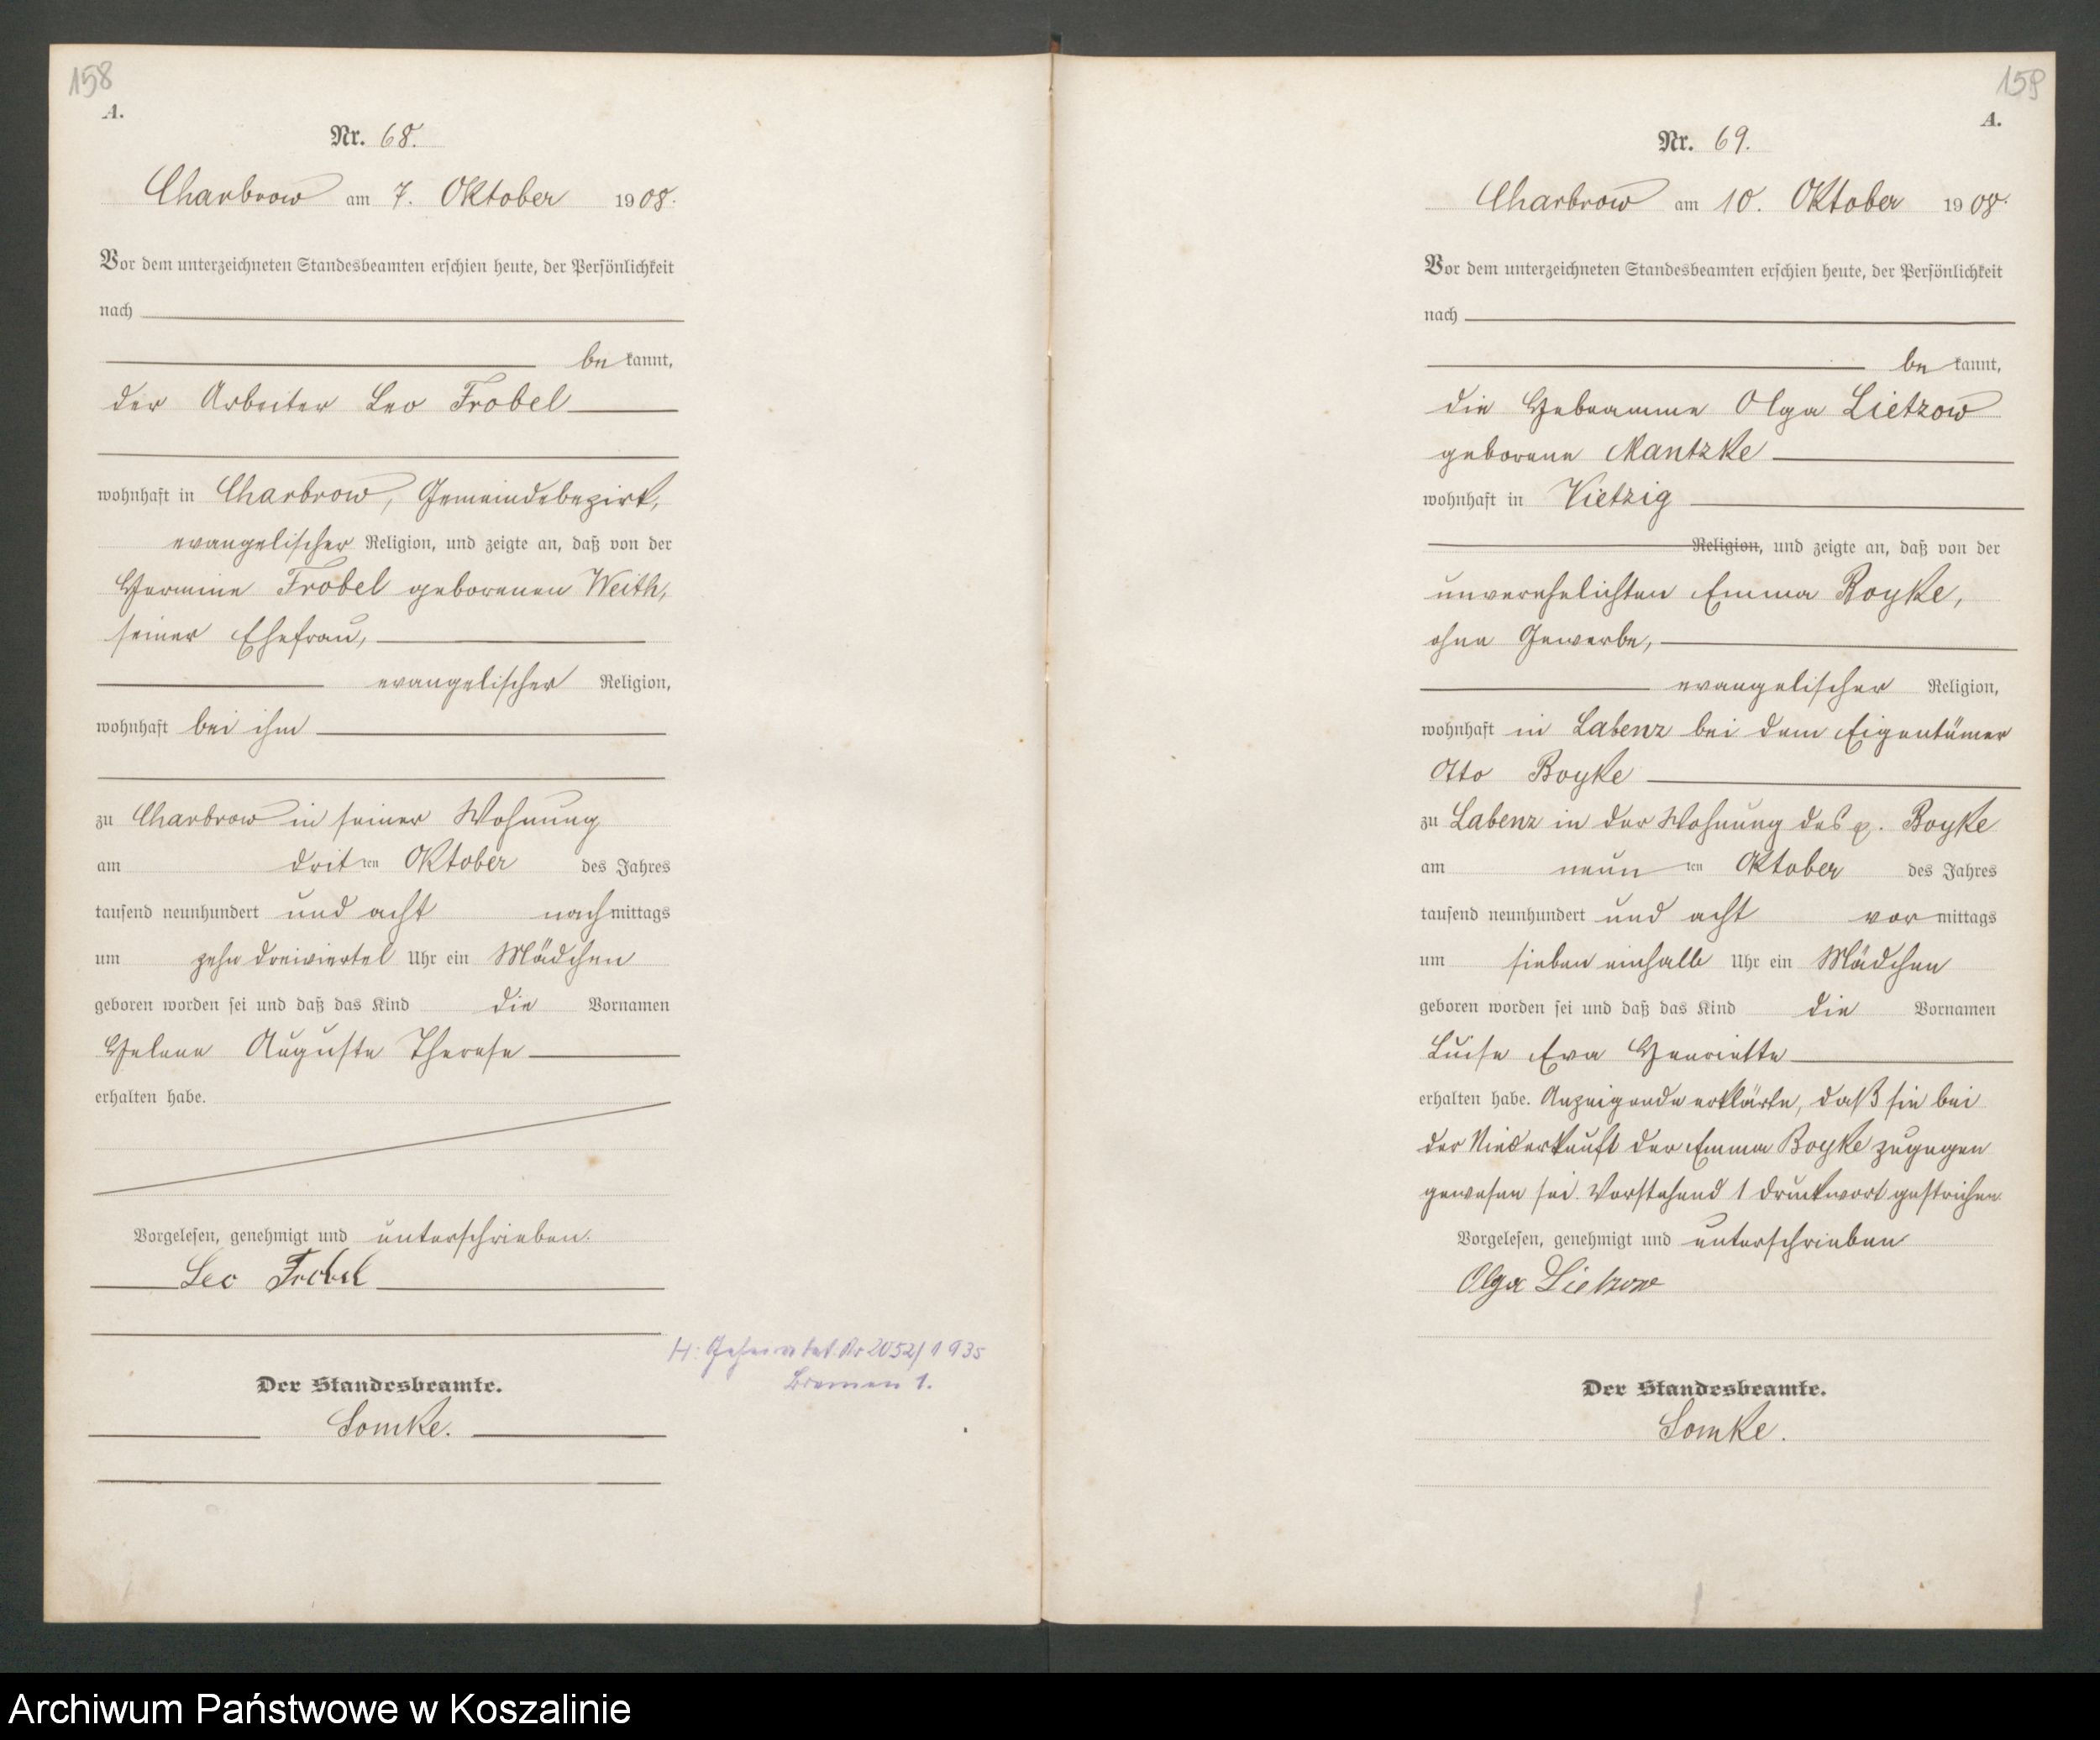 158
A.
Nr. 68.
Charbrow am 7. Oktober 1908.
Vor dem unterzeichneten Standesbeamten erschien heute, der Persönlichkeit
nach
be kannt,
der Arbeiter Leo Frobel
wohnhaft in Charbrow, Gemeindebezirk,
evangelischer Religion, und zeigte an, daß von der
Hermine Frobel geborenen Weith,
seiner Ehefrau,
evangelischer Religion,
wohnhaft bei ihm
zu Charbrow in seiner Wohnung
am dritten Oktober des Jahres
tausend neunhundert und acht nachmittags
um zehn dreiviertel Uhr ein Mädchen
geboren worden sei und daß das Kind die Vornamen
Helene Auguste Therese
erhalten habe.
Vorgelesen, genehmigt und unterschrieben.
Leo Frobel
H: Geheiratet Nr 2052/1935
Bremen 1.
Der Standesbeamte.
Lomke.
159
A.
Nr. 69.
Charbrow am 10. Oktober 1908.
Vor dem unterzeichneten Standesbeamten erschien heute, der Persönlichkeit
nach
be kannt,
die Hebeamme Olga Lietzow
geborene Mantzke
wohnhaft in Vietzig
Religion, und zeigte an, daß von der
unverehelichten Emma Boyke,
ohne Gewerbe,
evangelischer Religion,
wohnhaft in Labenz bei dem Eigentümer
Otto Boyke
zu Labenz in der Wohnung des p. Boyke
am neunten Oktober des Jahres
tausend neunhundert und acht vormittags
um sieben einhalb Uhr ein Mädchen
geboren worden sei und daß das Kind die Vornamen
Luise Eva Henriette
erhalten habe. Anzeigende erklärte, daß sie bei
der Niederkunft der Emma Boyke zugegen
gewesen sei. Vorstehend 1 Druckwort gestrichen.
Vorgelesen, genehmigt und unterschrieben
Olga Lietzow
Der Standesbeamte.
Lomke.
Archiwum Państwowe w Koszalinie